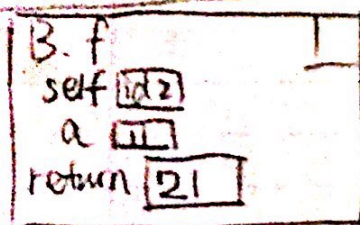 B.f
self id2
a 11
return 21